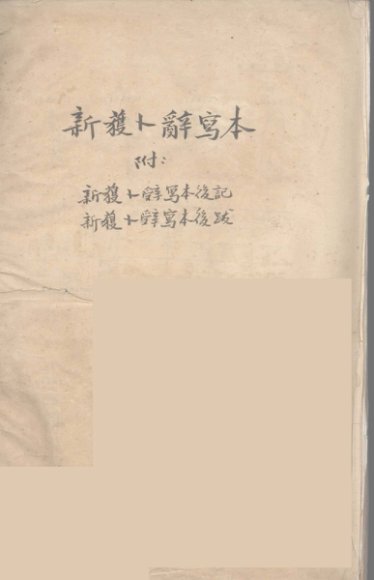 新獲卜辭寫本
附：
新獲卜辭写本後記
新獲卜辭写本後跋